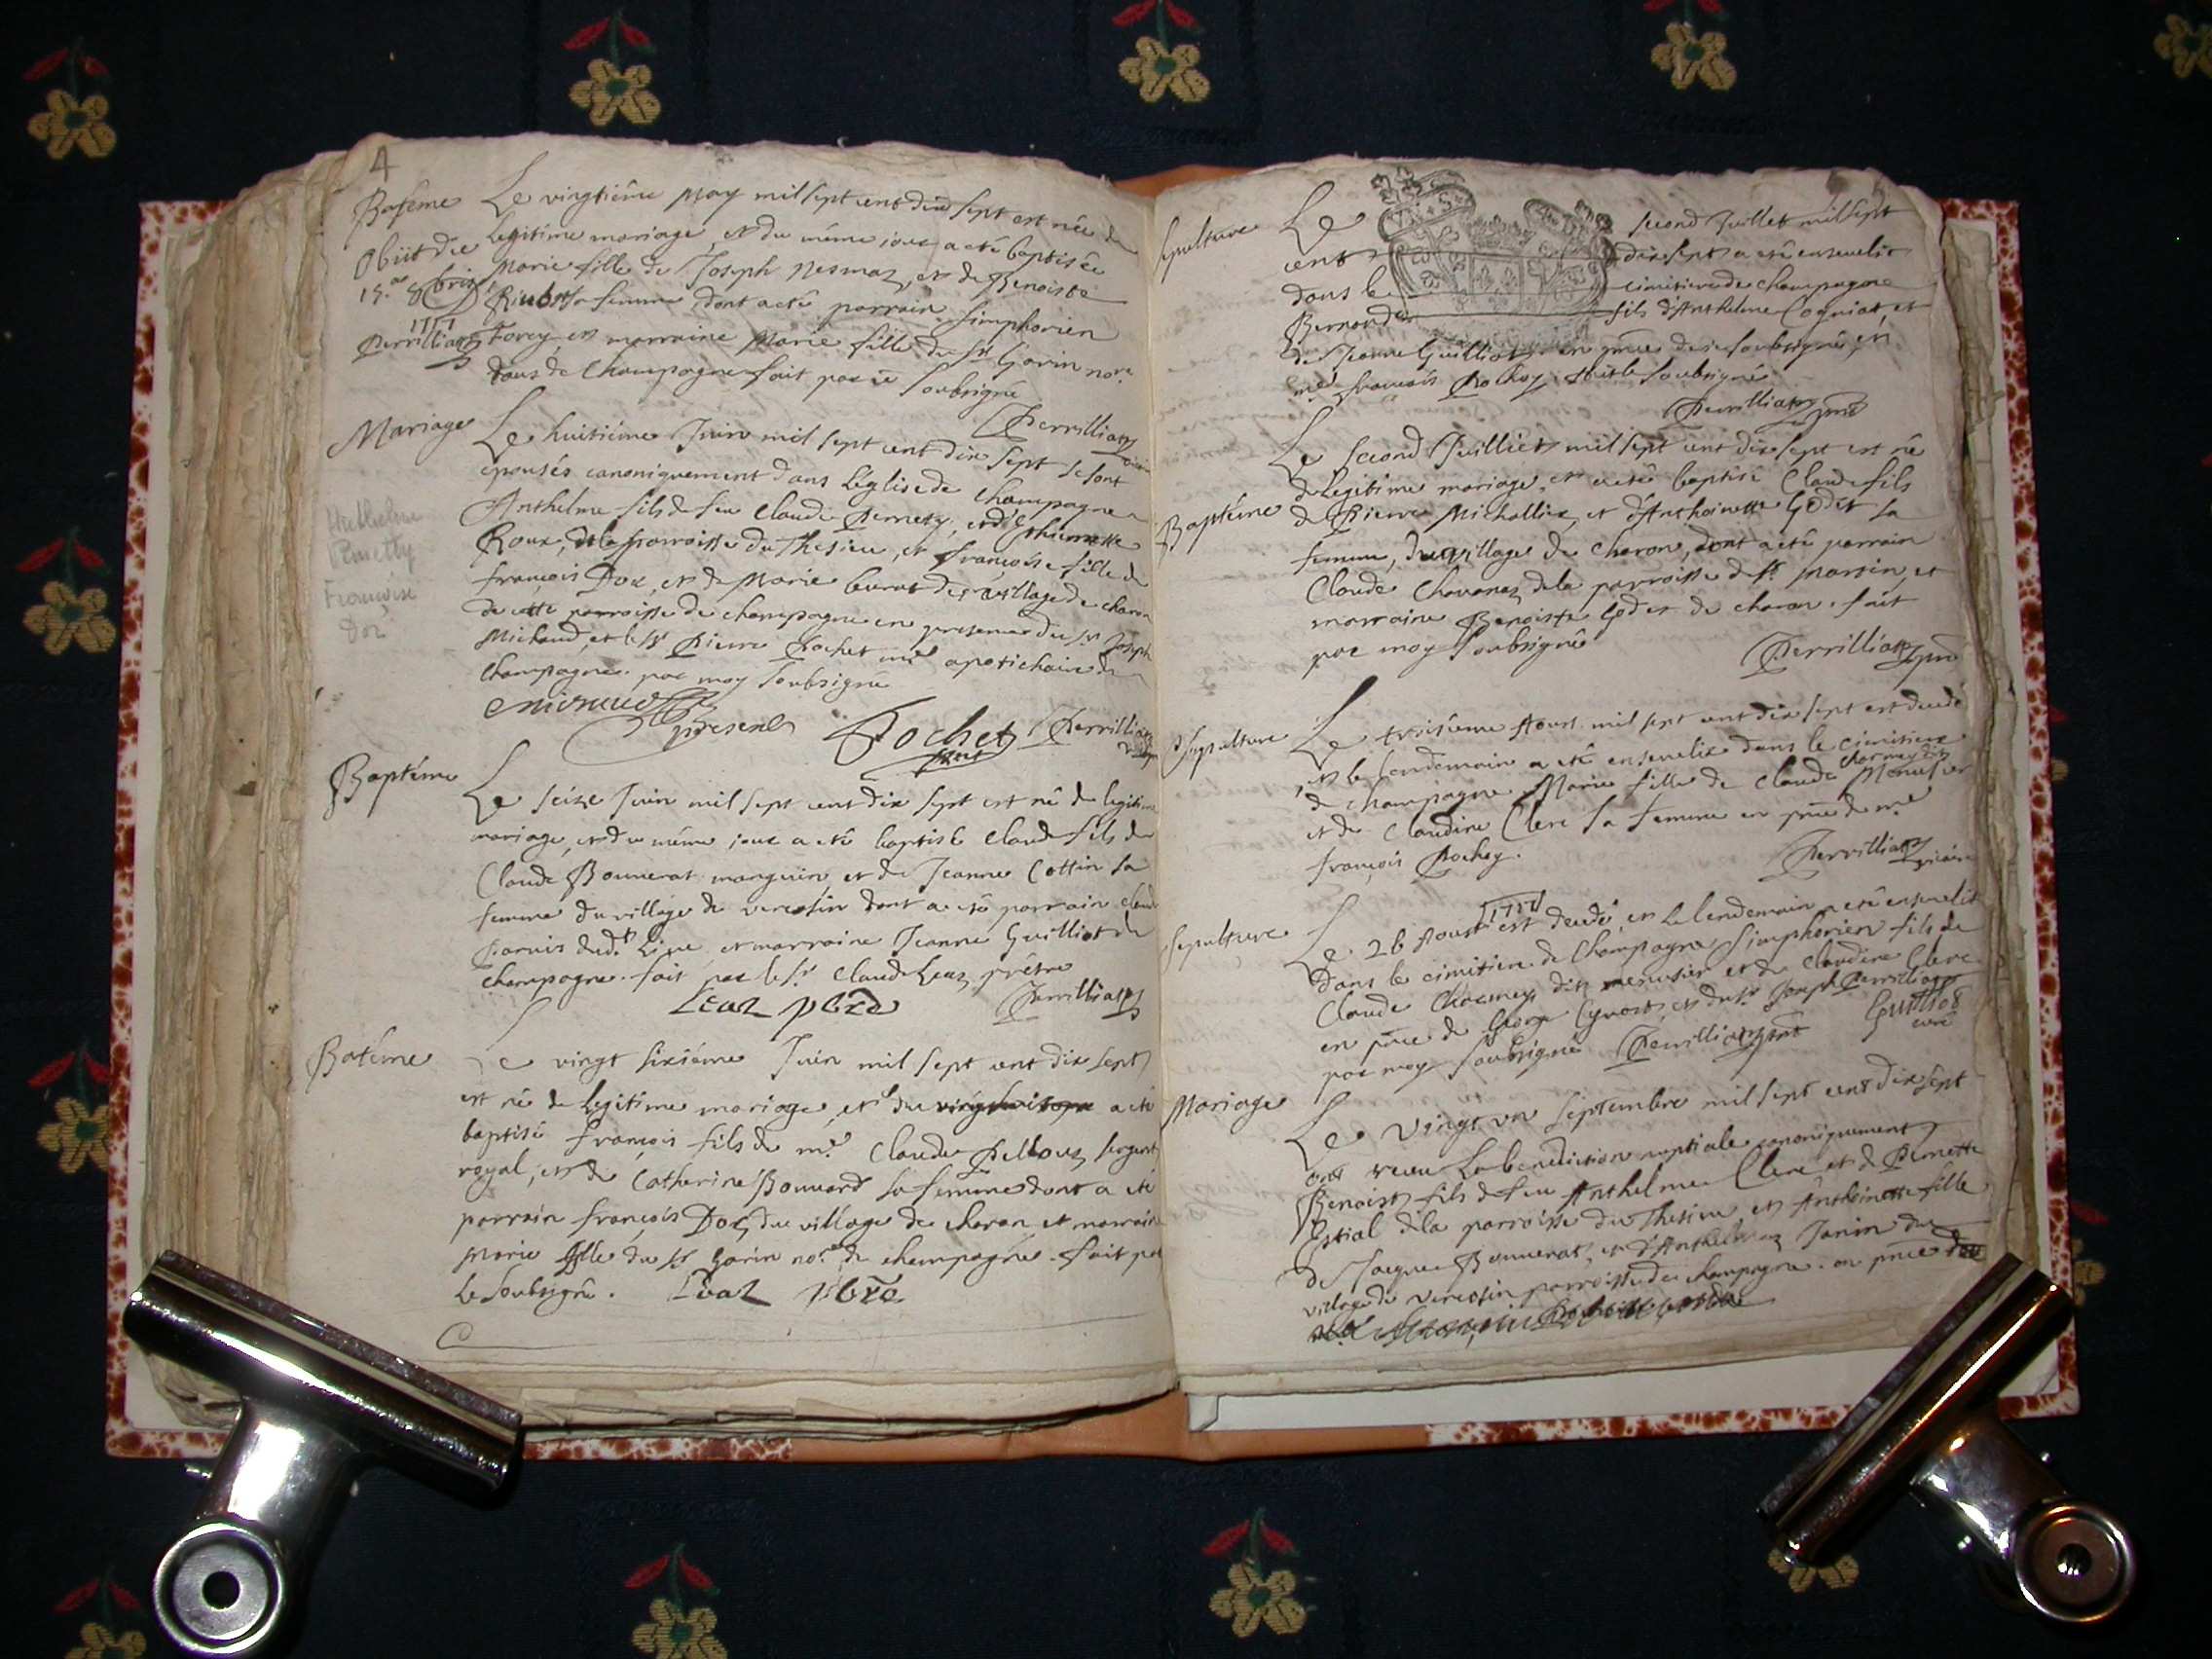 4
Batême
Le vingtiéme May mil sept cent dix sept est née de
legitime mariage, et du même jour a eté baptisée
Obiit die
Marie fille de Joseph Nesmoz, et de Benoiste
15.ae 8bris
sa femme dont a eté parrain Simphorien
1717
Perrilliat
Forey, et marraine Marie fille du Sr Gorin nore
de Champagne fait par le Soubsigné
Perrilliat
Mariage
Le huitiéme Juin mil sept cent dix sept se sont
épousés canoniquement dans L'Eglise de Champagne
Anthelme fils de feu Claude Pernety, et d'Estiennette
Roux, de la parroisse du Thesieu, et françoise fille de
françois Dor, et de Marie du village de charon
de cette parroisse de champagne en presence du Sr Joseph
Michaud, et le Sr Pierre Rochet me apotichaire de
Champagne. par moy Soubsigné
Anthelme
Pernetty
Françoise
Dor
michaud present
Rochet
Perrilliat
Baptéme
Le seize Juin mil sept cent dix sept est né de legitime
mariage, et du même jour a eté baptisé Claude fils de
Claude Bonnerat manguin et de Jeanne Cottin sa
femme du village de vercosin dont a eté parrain claude
dud.t Lieu et marraine Jeanne Guilliot de
champagne. fait par le Sr Claude Leaz prêtre
Leaz pbre
Perrilliat
Batême
Le vingt sixiéme Juin mil sept cent dix sept
est né de legitime mariage, et du a eté
baptisé françois fils de me Claude Pelloux sergent
royal, et de Catherine Bonnard sa femme dont a eté
parrain françois Dor du village de charon et marraine
Marie fille du Sr Gorin no.re de champagne. fait par
le Soubsigné. Leaz pbre
Sepulture
Le second Juillet mil sept
cent dix sept a eté enseveli
dans le cimitiere de champagne
Bernard fils d'Anthelme Cogniat, et
de Jeanne Guilliot en pnce des soubsignés, et
me françois Rochez
Perrilliat
Baptéme
Le second Juilliet mil sept cent dix sept est né
de legitime mariage, et a eté baptisé Claude fils
de Pierre Michallier, et d'Anthoinette Godet sa
femme, du village de charon, dont a eté parrain
Claude Chavanez de la parroisse de St Martin, et
marraine Benoiste Godet de charon. fait
par moy Soubsigné
Perrilliat
Sepulture
Le troisiéme Aoust mil sept cent dix sept est decedé
et le lendemain a eté ensevelie dans le cimitiere
de champagne Marie fille de Claude Charmey dit Menusier
et de Claudine Clerc sa femme en pnce de me
françois Rochey.
Perrilliat
Sepulture
1717
Le 26 Aoust est decedé, et le lendemain a eté enseveli
Dans le cimitiere de Champagne Simphorien fils de
Claude Charmey dit menusier et de Claudine Clerc
en pnce de George Cyvost, et du Sr Joseph Perrilliat
par moy Soubsigné Perrilliat
Guilliot
curé
Mariage
Le vingt un septembre mil sept cent dix sept
ont receu la benediction nuptiale canoniquement
Benoist fils de feu Anthelme Clerc et de Pernette
Estial de la parroisse du Thesieu et Anthoinette fille
de Jacque Bonnerat, et d'Anthelmaz Janin du
village de vercosin parroisse de champagne. en pnce